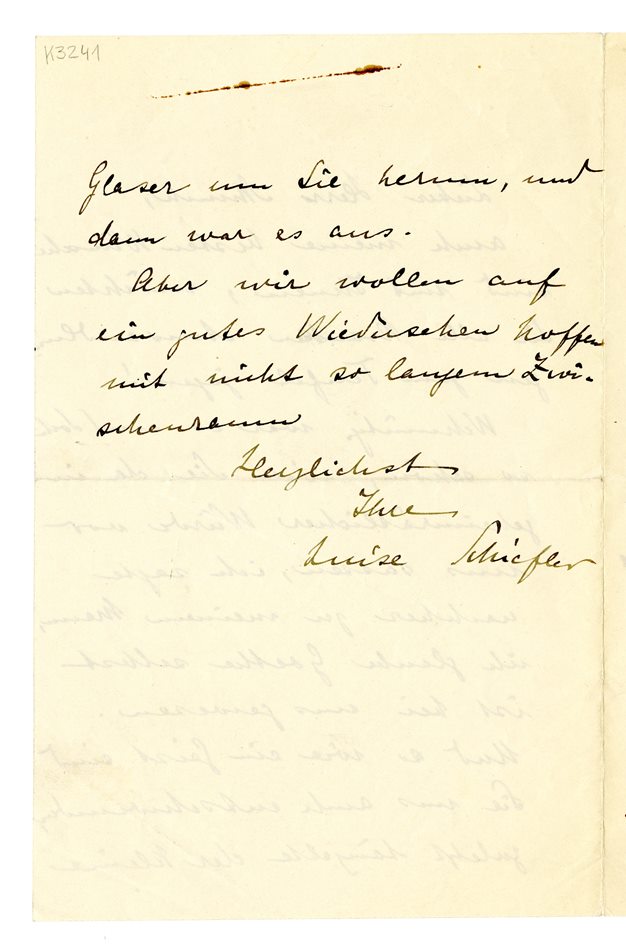 K3241
Glaser um Sie herum, und
dann war es aus.
Aber wir wollen auf
ein gutes Wiedersehen hoffen
mit nicht so langem Zwi-
schenraum
Herzlichst
Ihre
Luise Schiefler